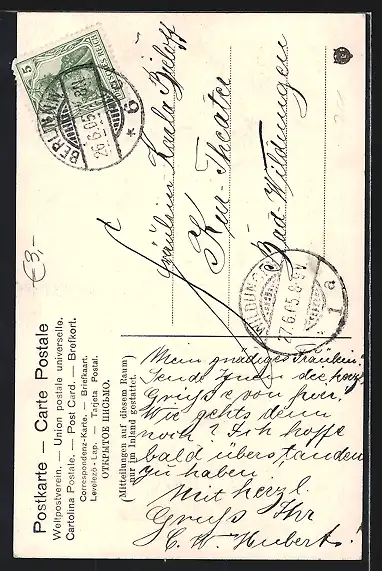 Postkarte — Carte Postale
Weltpostverein. — Union postale universelle.
Cartolina Postale. — Post Card. — Brefkort.
Correspondenz-Karte. — Briefkaart.
Levelező-Lap. — Tarjeta Postal.
ОТКРЫТОЕ ПИСЬМО.
(Mitteilungen auf diesem Raum
nur im Inland gestattet.)
€3,-
5
BERLIN
26.6.05
* 6
Fräulein Karla
Kur-Theater
Bad Wildungen
WILDUN
27.6.05. 8-9V.
1 a
Mein gnädiges Fräulein!
Sende Ihnen die herzl.
Grüße von
Wie gehts denn
noch? Ich hoffe
bald überstanden
zu haben.
Mit herzl.
Gruß Ihr
C. W. Huberts.